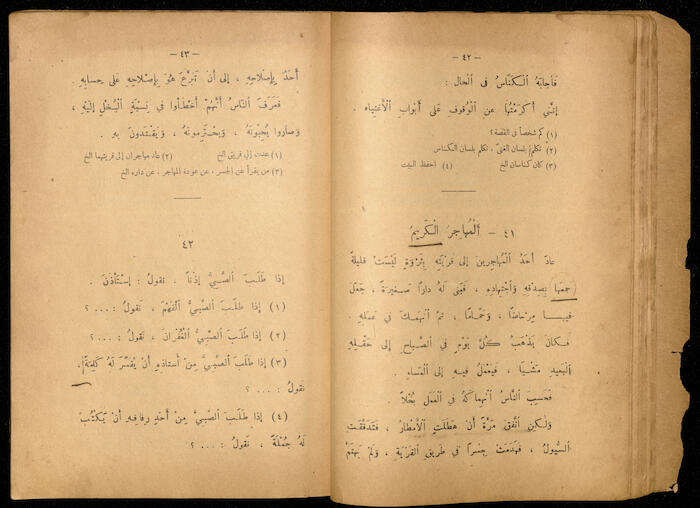 — ٤٢ —
فَأَجابَهُ ٱلكَنّاسُ فى الحَال :
إنَّني أَكرَمتُها عَنِ الوُقوفِ عَلى أَبوابِ الأَغنِياءِ .
(١) كم شخصاً فى القصة؟
(٢) تكلم بلسان الغنىّ ، تكلم بلسان الكناس
(٣) كان كناسان الخ (٤) احفظ البيت
٤١ – أَلمُهاجِرُ الكَريمُ
عادَ أَحَدُ المُهاجِرينَ إلى قَريَتِهِ بِثَروَةٍ لَيسَتْ قَليلةً
جمعَها بِصِدقِهِ وَأجتِهادِهِ ، فَبَنى لَهُ داراً صَغيرَةً ، جَعَلَ
فيها مِرحاضاً ، وَحَمّاماً ، ثمَّ ٱنهَمَكَ في عَمَلِهِ .
فَكانَ يَذهَبُ كُلَّ يَوْمٍ في الصَّباحِ إلى حَقلِهِ
البَعيدِ مَشْياً ، فَيَعْمَلُ فيهِ إلى المَساءِ .
فَحَسِبَ النّاسُ ٱنهِماكَهُ في العَمَلِ بُخلاً .
وَلٰكِنِ ٱتَّفَقَ مَرَّةً أَنْ هَطَلَتِ الأَمْطارُ ، فَتَدَفَّقَتِ
السُّيولُ ، فَهَدَمَتْ جِسراً في طَريقِ القَريَةِ ، وَلَمْ يَهتَمَّ
— ٤٣ —
أَحَدٌ بِإصْلاحِهِ ، إلى أَنْ تَبَرَّعَ هُوَ بِإصْلاحِهِ عَلى حِسابِهِ .
فَعَرَفَ النّاسُ أَنَّهُمْ أَخطَأُوا في نِسْبَةِ البُخْلِ إلَيْهِ ،
وَصاروا يُحِبّونَهُ ، وَيَحْتَرِمونَهُ ، وَيَقْتَدونَ بِهِ .
(١) عدت إلى قريتى الخ (٢) عاد مهاجران إلى قريتهما الخ
(٣) من يقرأ عن الجسر ، عن عودة المهاجر ، عن داره الخ
٤٢
إذا طَلَبَ الصَّبيُّ إذْناً ، نَقولُ : إسْتَأْذَنَ .
(١) إذا طَلَبَ الصَّبيُّ الفَهْمَ ، نَقولُ : . . . ؟
(٢) إذا طَلَبَ الصَّبيُّ الغُفْرانَ ، نَقولُ : . . . ؟
(٣) إذا طَلَبَ الصَّبيُّ مِنْ أُستاذِهِ أَنْ يُفَسِّرَ لَهُ كَلِمَةً ،
نَقولُ : . . . ؟
(٤) إذا طَلَبَ الصَّبيُّ مِنْ أَحَدِ رِفاقِهِ أَنْ يَكْتُبَ
لَهُ جُمْلَةً ، نَقولُ : . . . ؟